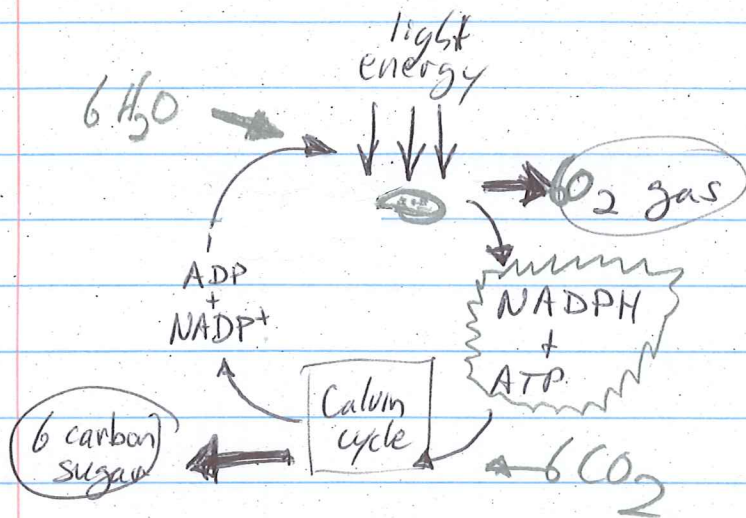 light
energy
6 H₂O
6O₂ gas
ADP
+
NADP⁺
NADPH
+
ATP
Calvin
cycle
6 carbon
sugar
6CO₂